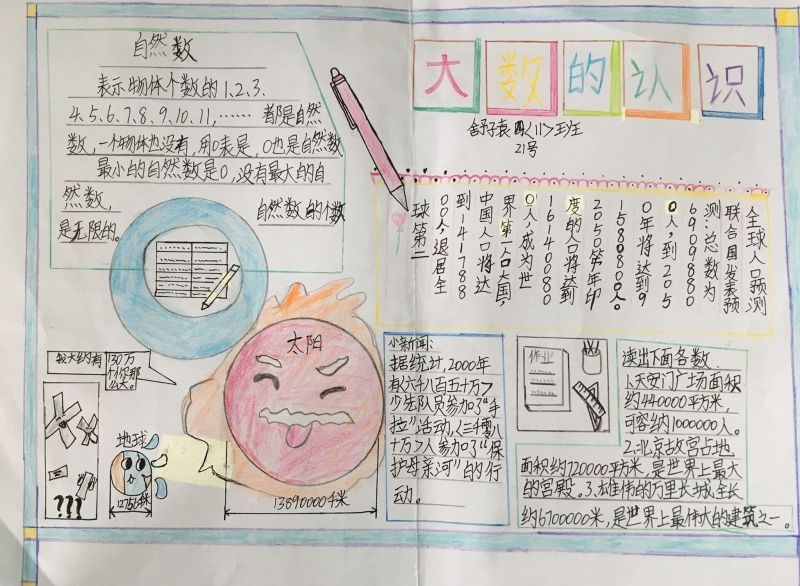 大数的认识
舒子袁 四〈11〉班
21号
自然数
表示物体个数的1、2、3、
4、5、6、7、8、9、10、11,……都是自然
数,一个物体也没有,用0表是,0也是自然数
最小的自然数是0,没有最大的自
然数,
自然数的个数
是无限的。
全球人口预测
联合国发表预
测:总数为
6909880
0人,到205
0年将达到9
1580800人。
2050第年印
度的人口将达到
16140080
0人,成为世
界第一人口大国,
中国人口将达
到141788
00,退居全
球第二
太阳
我大约有
130万
个你那
么大。
???
地球
12756千米
13890000千米
小新闻:
据统计,2000年
有〈六千八百五十万〉
少先队员参加了“手
拉”活动,〈三千零八
十万〉人参加了“保
护母亲河”的行
动。
作业
读出下面各数.
1.天安门广场面积
约440000平方米,
可容纳1000000人。
2.北京故宫占地
面积约720000平方米,是世界上最大
的宫殿。3.雄伟的万里长城,全长
约6700000米,是世界上最伟大的建筑之一。